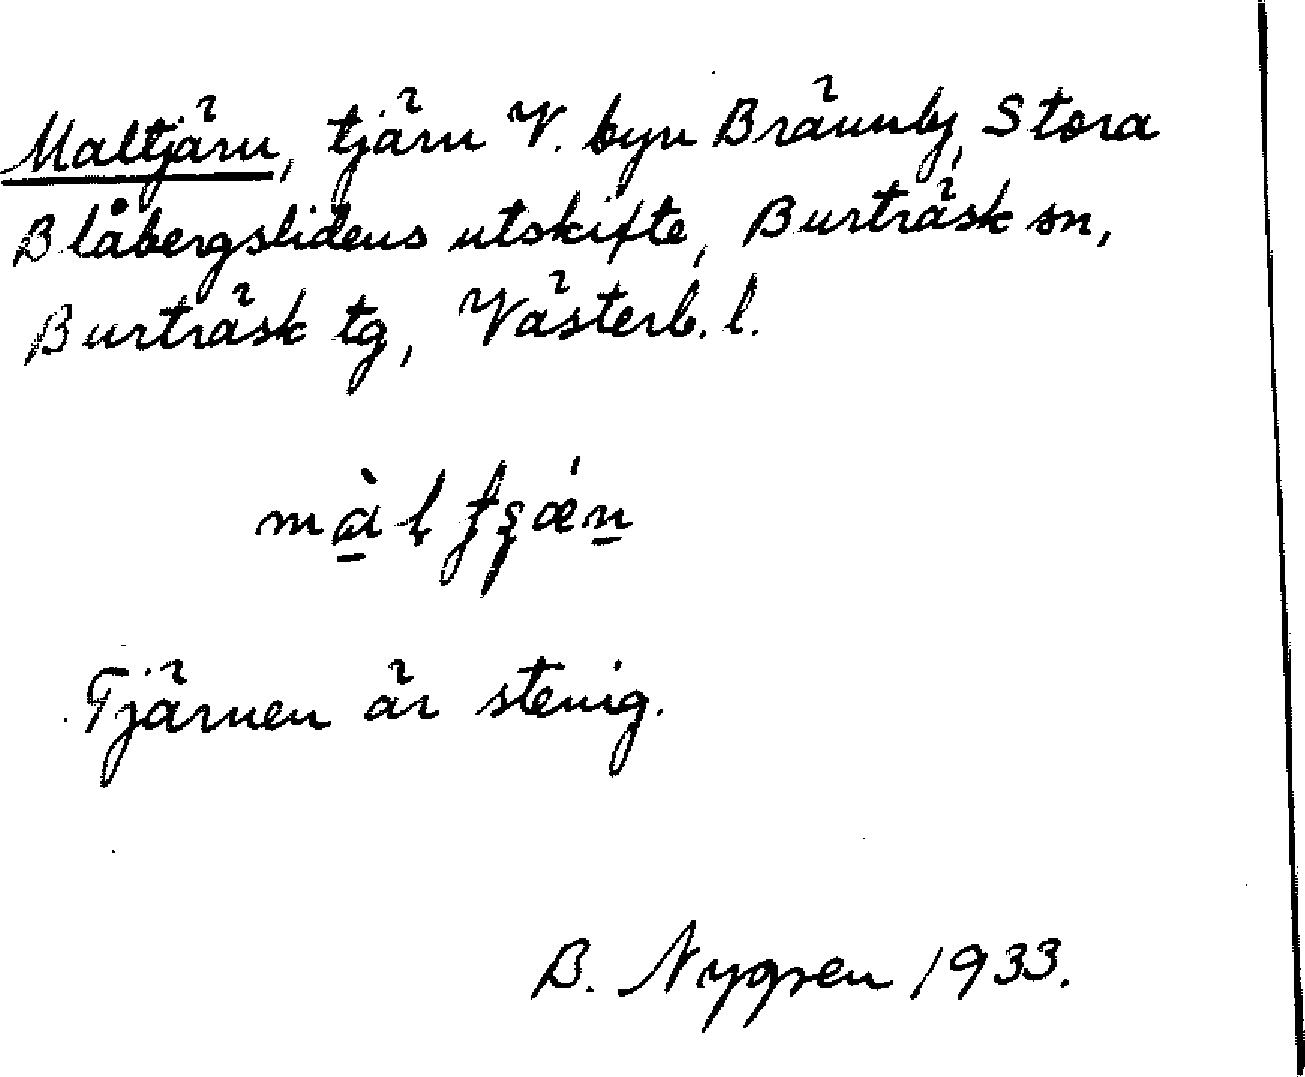 Maltjärn, tjärn V. byn Brännby, Stora
Blåbergslidens utskifte, Burträsk sn,
Burträsk tg, Västerb. l.
Tjärnen är stenig.
B. Nygren 1933.